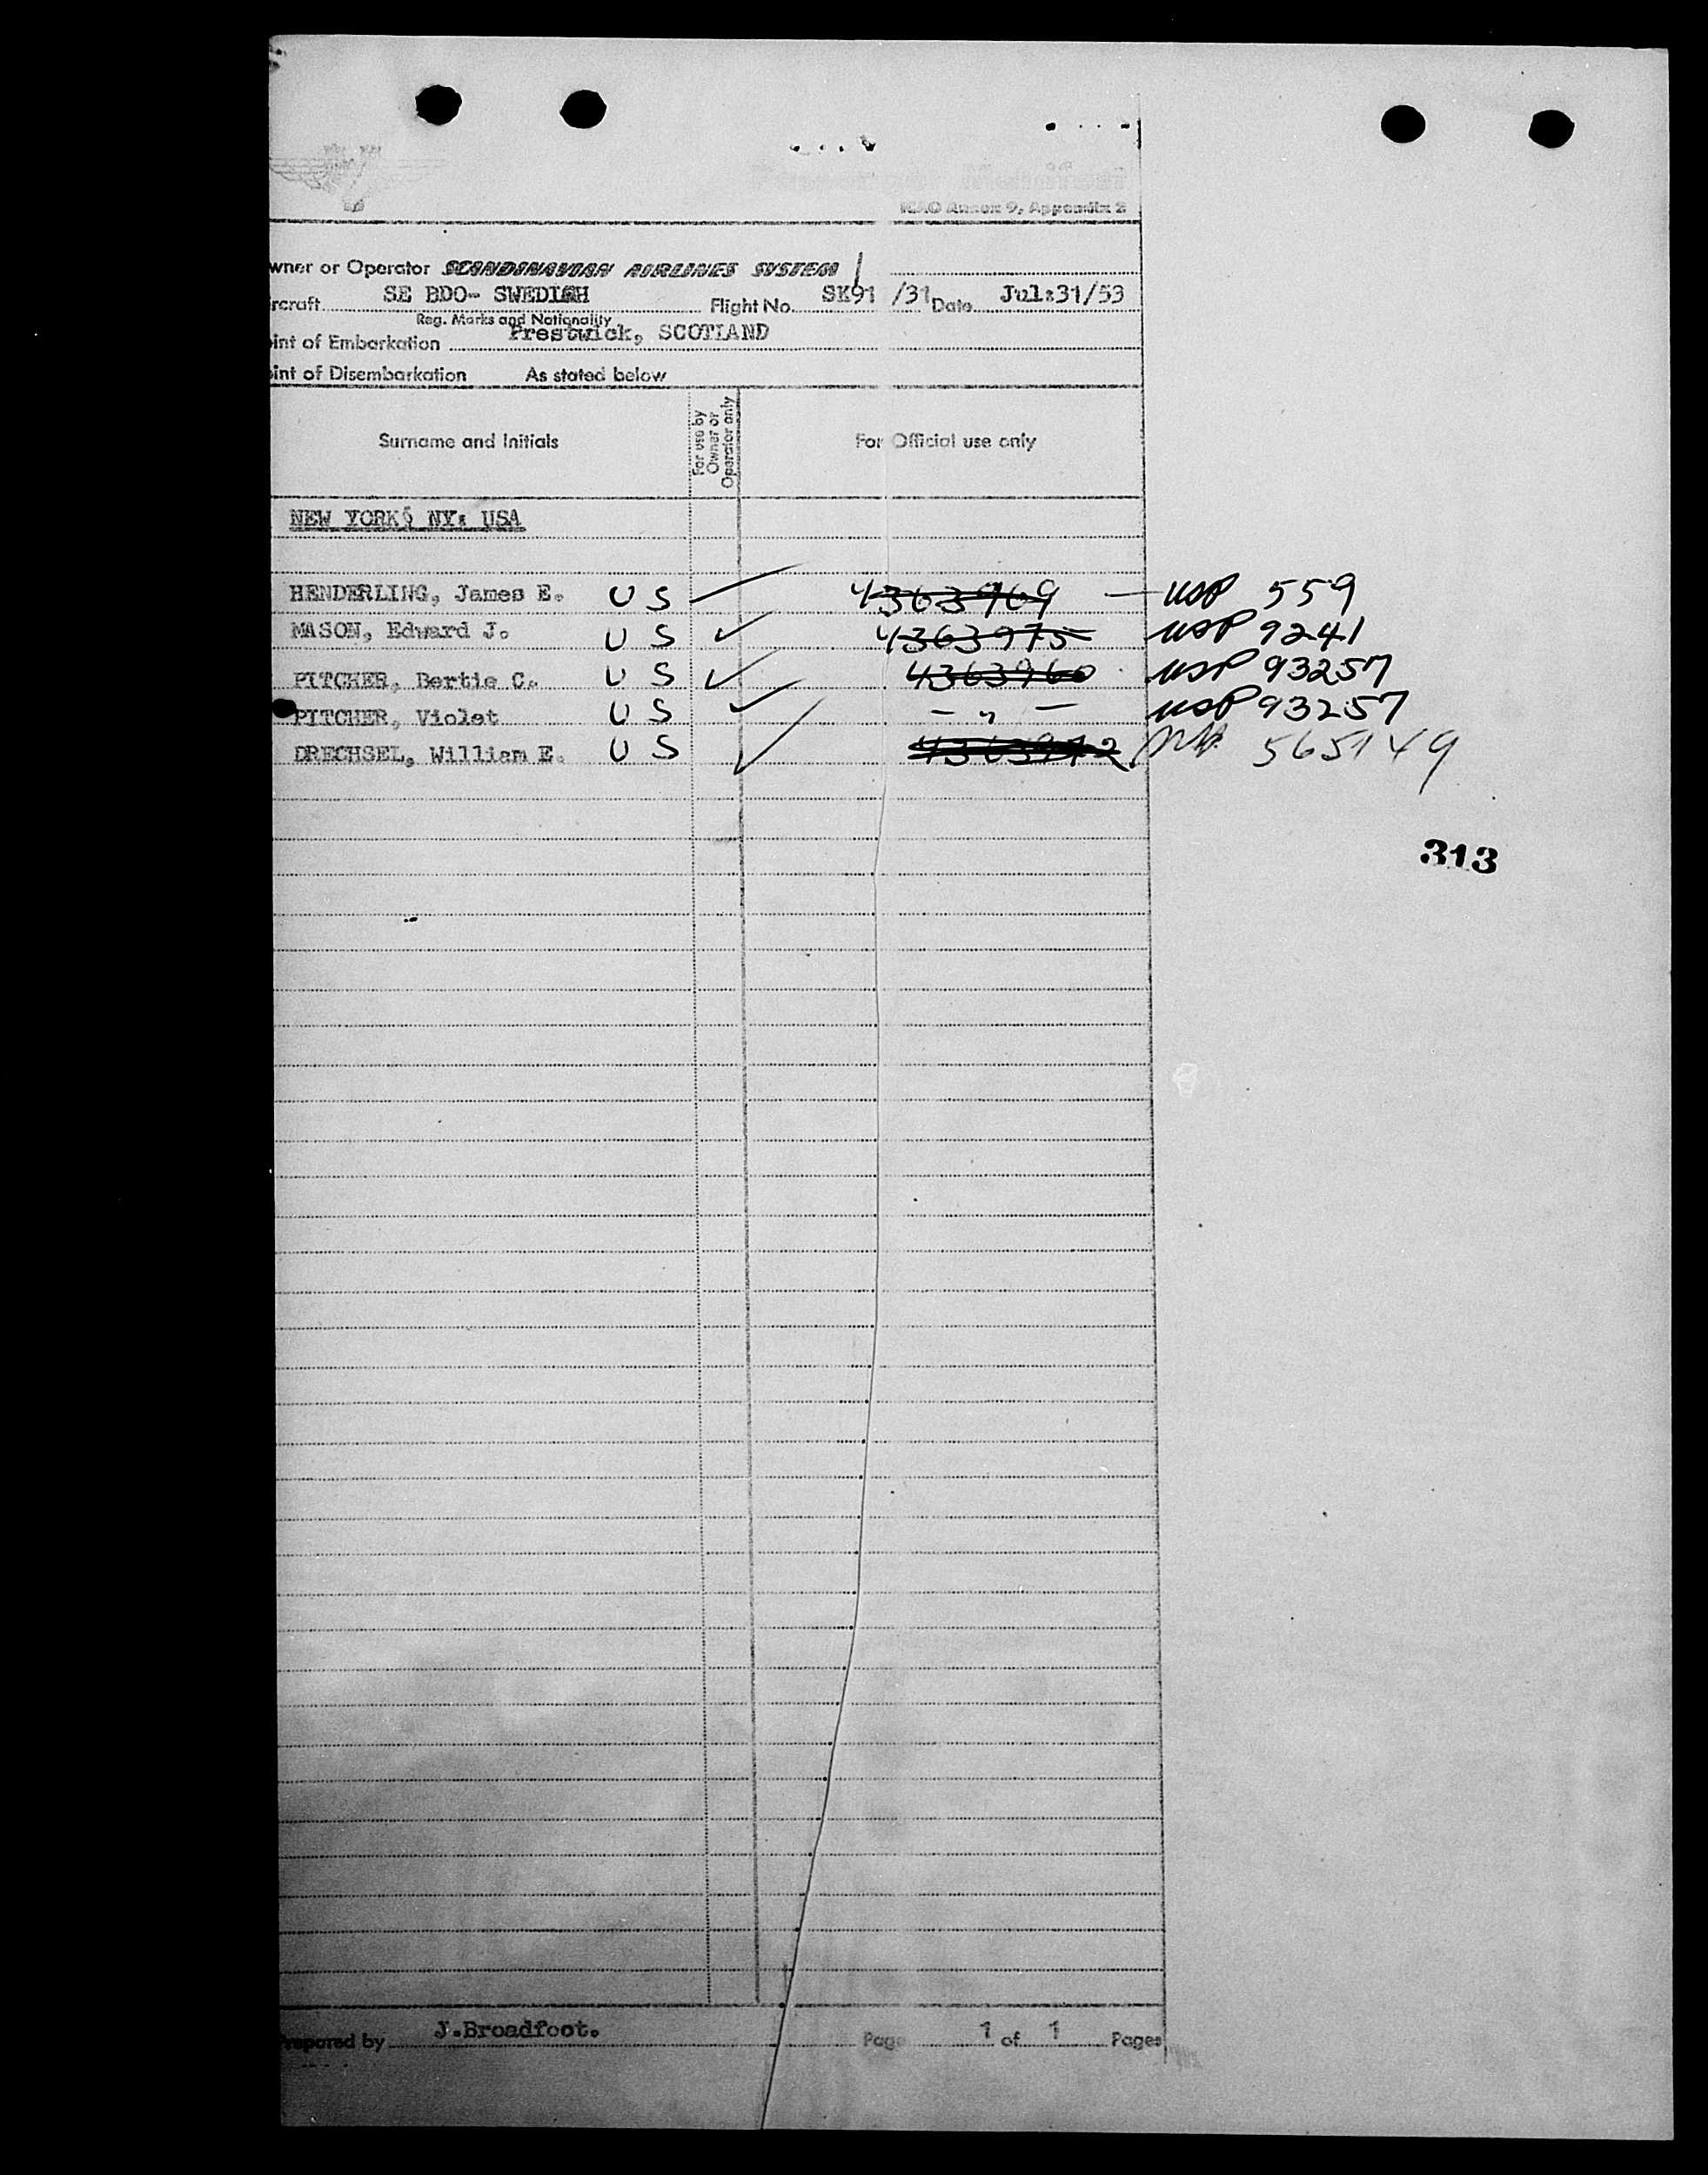 ICAO Annex 9, Appendix 2
wner or Operator SCANDINAVIAN AIRLINES SYSTEM
rcraft SE BDO- SWEDISH Flight No. SK91 /31 Date Jul:31/53
Reg. Marks and Nationality
oint of Embarkation Prestwick, SCOTLAND
oint of Disembarkation As stated below
Surname and Initials For use by Owner or Operator only For Official use only
NEW YORK, NY: USA
HENDERLING, James E. U S 4363969 — USP 559
MASON, Edward J. U S 4363975 USP 9241
PITCHER, Bertie C. U S 4363960 USP 93257
PITCHER, Violet U S — " — USP 93257
DRECHSEL, William E. U S 4363972 565149
313
Prepared by J.Broadfoot. Page 1 of 1 Pages